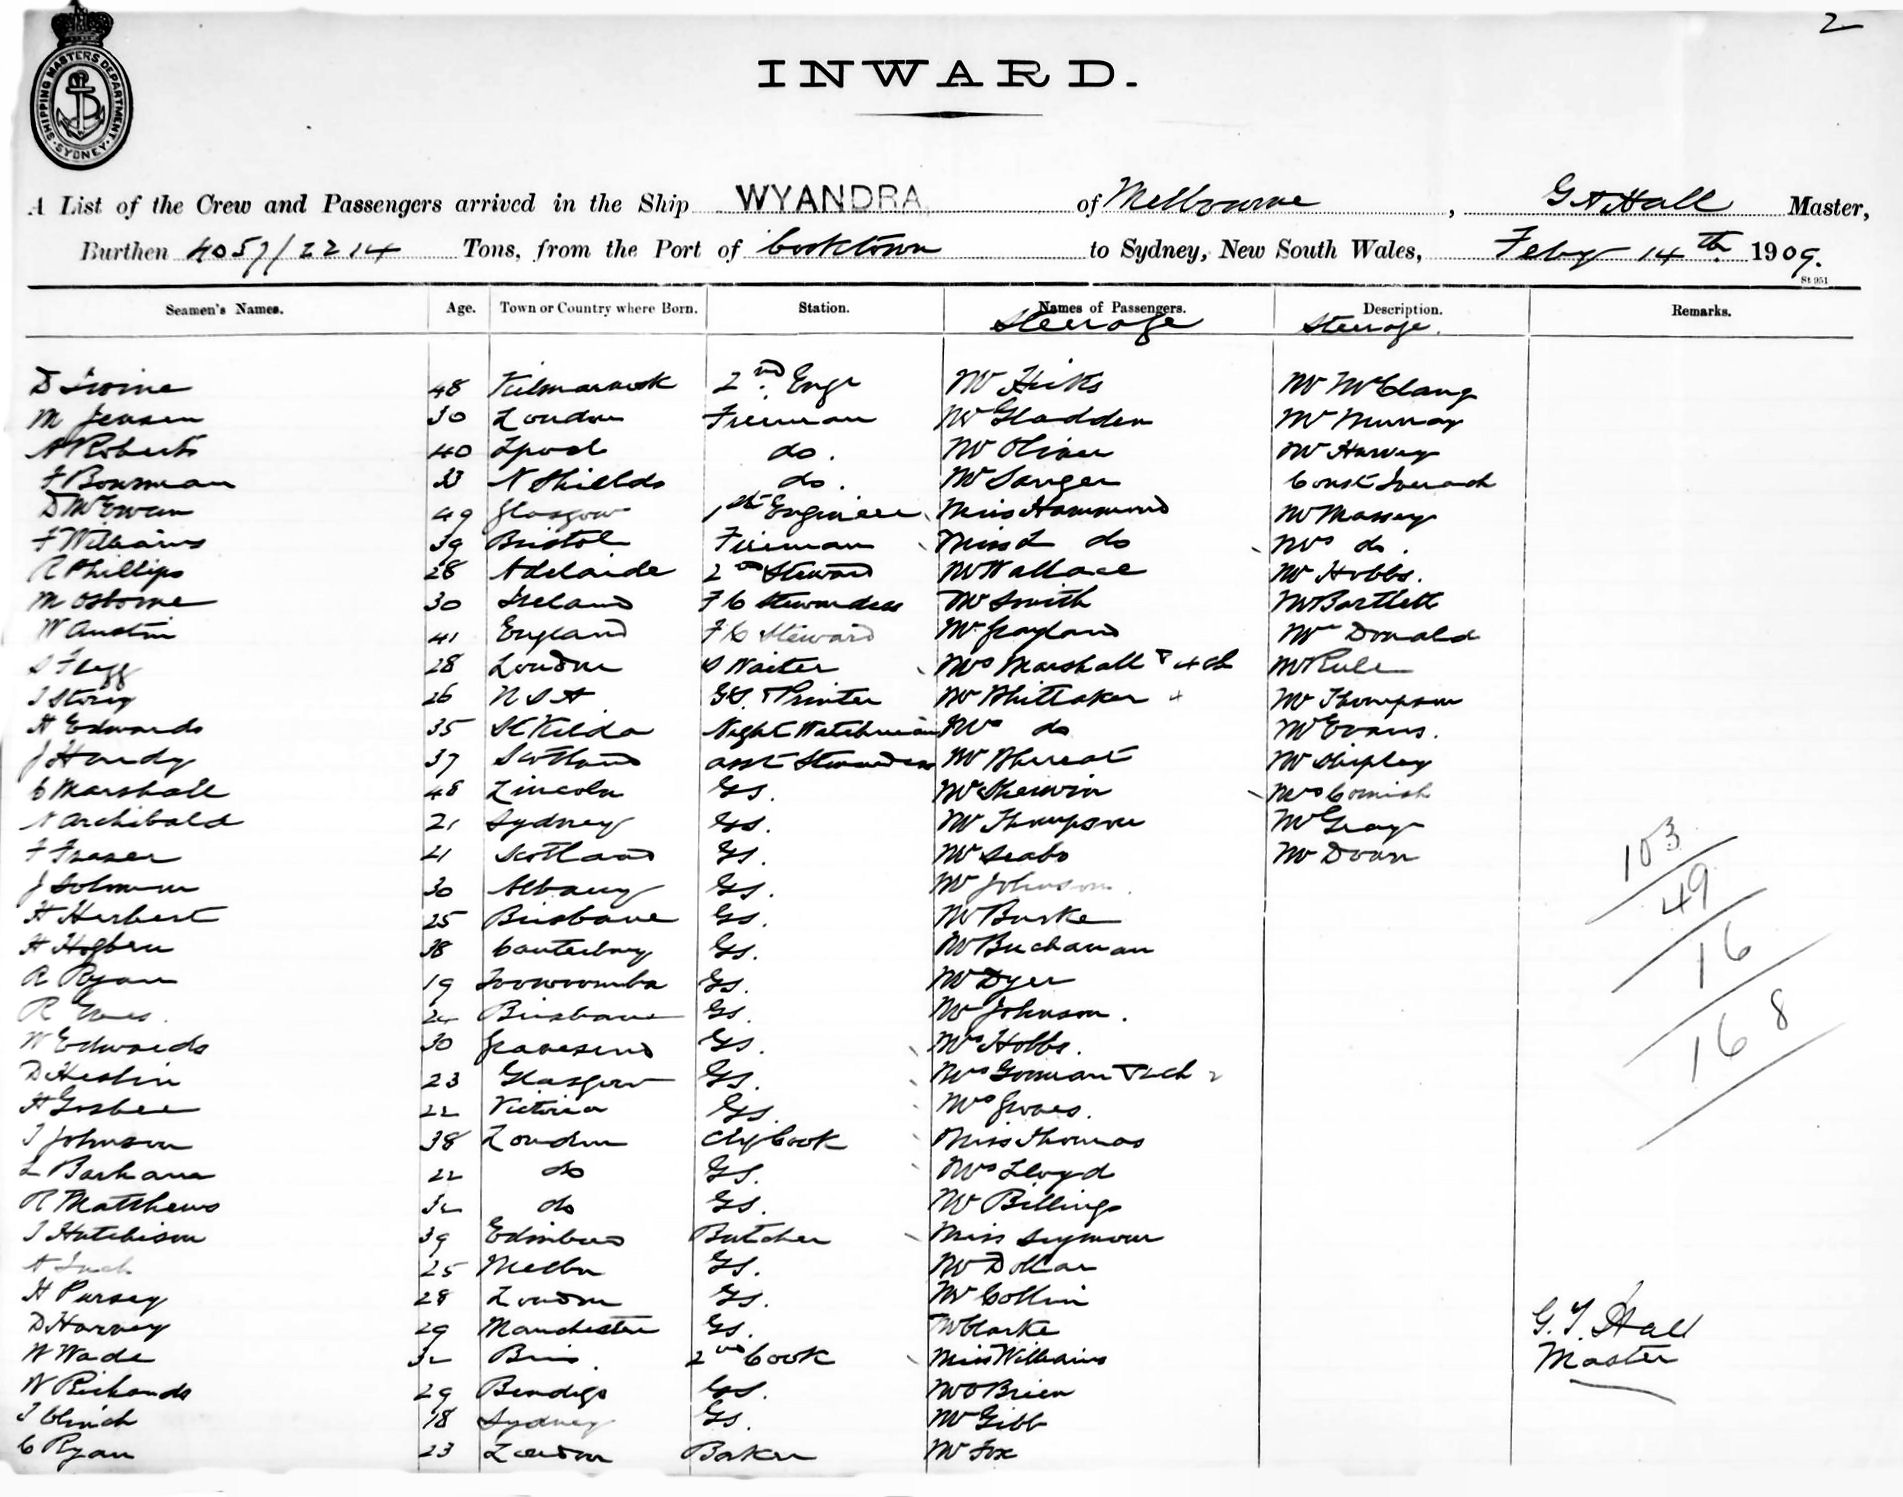 2
SHIPPING MASTERS DEPARTMENT
SYDNEY
INWARD.
A List of the Crew and Passengers arrived in the Ship WYANDRA of Melbourne, G A Hall Master,
Burthen 4057/2214 Tons, from the Port of Cooktown to Sydney, New South Wales, Feby 14th 1909.
St 951
Seamen's Names. Age. Town or Country where Born. Station. Names of Passengers. Description. Remarks.
Steerage Steerage.
D Irvine 48 Kilmarnock 2nd Engr Mr Hicks Mr McClang
M Jensen 30 London Fireman Mr Gladden Mr Murray
A Roberts 40 Lpool do. Mr Oliver Mr Harvey
F Bowman 33 N Shields do. Mr Sanger Const
D McEwan 49 Glasgow 1st Engineer Miss Hammond Mr Massey
F Williams 39 Bristol Fireman Miss L do Mrs do.
R Phillips 28 Adelaide 2nd Steward Mr Wallace Mr Hobbs.
M Osborne 30 Ireland F C Stewardess Mr Smith Mr Bartlett
W Austin 41 England F C Steward Mr Grayland Mr Donald
S Flegg 28 London S Waiter Mrs Marshall & 4 ch Mr Rule
J Storey 26 U S A. GS. & Printer Mr Whittaker Mr Thompson
H Edwards 35 St Kilda Night Watchman Mrs do Mr Evans.
J Hardy 37 Scotland asst Stewardess Mr Shipley
C Marshall 48 Lincoln GS. Mr Sherwin Mrs Cornish
N Archibald 21 Sydney GS. Mr Thompson Mr Gray
F Fraser 21 Scotland GS. Mr Seabs Mr Doan
J Solomon 30 Albany GS. Mr Johnson.
H Herbert 25 Brisbane GS. Mr Burke
H Hogben 38 Canterbury GS. Mr Buchanan
R Ryan 19 Toowoomba GS. Mr Dyer
R 24 Brisbane GS. Mr Johnson.
W Edwards 30 Gravesend GS. Mrs Hobbs.
D Heslin 23 Glasgow GS. Mrs Gorman & 2 ch
H Gosbee 22 Victoria GS. Mrs
J Johnson 38 London Ch Cook Miss Thomas
L Barham 22 do GS. Mrs Lloyd
R Matthews 32 do GS. Mr Billings
J Hutchison 39 Edinburg Butcher Miss Seymour
A 25 Melbn GS. Mr Dollar
H Pursey 28 London GS. Mr Collin
D Harvey 29 Manchester GS. Mr Clarke
W Wade 32 Bris. 2nd Cook Miss Williams
W Richards 29 Bendigo GS. Mr O Brien
J Clinch 18 Sydney GS. Mr Gibb
C Ryan 23 London Baker Mr Fox
103
49
16
168
G. Hall
Master